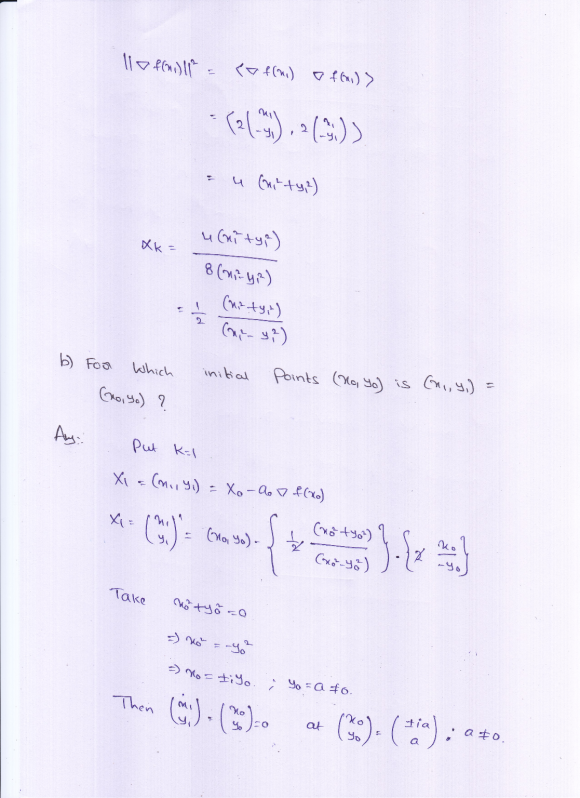 ||∇f(x₁)||² = ⟨∇f(x₁) ∇f(x₁)⟩
= ⟨2(x₁ -y₁), 2(x₁ -y₁)⟩
= 4 (x₁²+y₁²)
αk = 4(x₁²+y₁²) / 8(x₁²-y₁²)
= 1/2 (x₁²+y₁²) / (x₁²-y₁²)
b) For which initial points (x₀,y₀) is (x₁,y₁) =
(x₀,y₀) ?
Ans:
Put K=1
X₁ = (x₁,y₁) = X₀ - a₀ ∇ f(x₀)
X₁ = (x₁ y₁)' = (x₀,y₀) - {1/2 (x₀²+y₀²) / (x₀²-y₀²)} · {2 x₀ -y₀}
Take x₀²+y₀² = 0
⇒ x₀² = -y₀²
⇒ x₀ = ±iy₀ ; y₀ = a ≠ 0.
Then (x₁ y₁) = (x₀ y₀) = 0 at (x₀ y₀) = (±ia a) ; a ≠ 0.